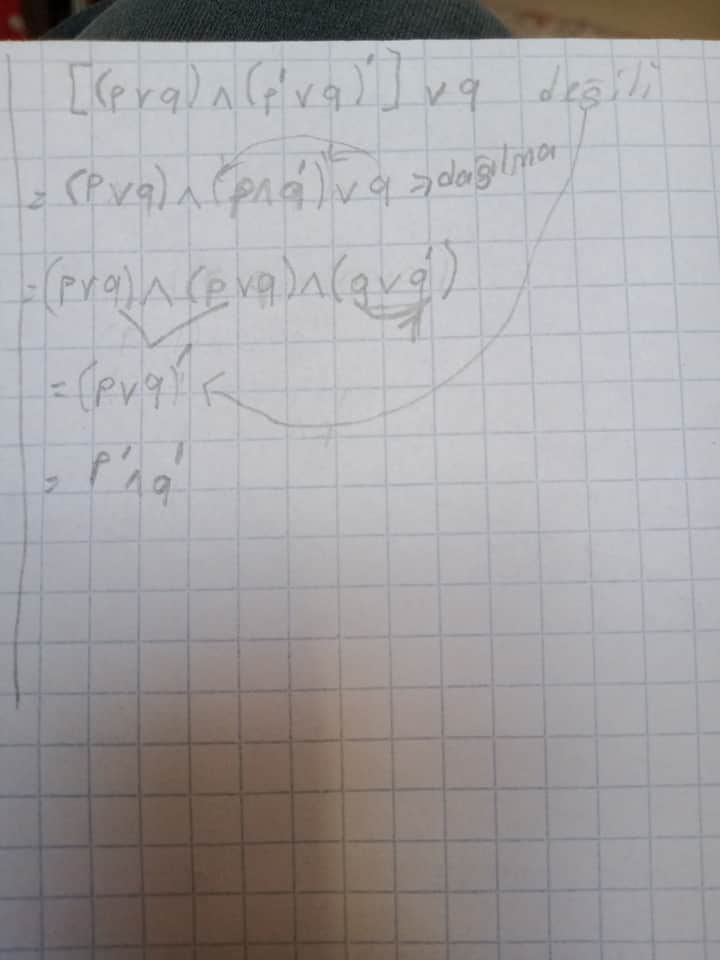 [(p∨q)∧(p'∨q)']∨q değili
=(p∨q)∧(p∧q')∨q ⇒dağılma
=(p∨q)∧(p∨q)∧(q∨q')
=(p∨q)'
= p'∧q'